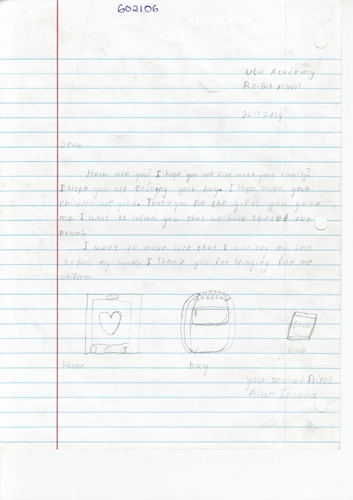 602106
Ulu Academy
P.O.Box
2019
Dear
How are you? I hope you are fine with your family?
I hope you are enjoying your day. I hope even your
children are good. Thank you for the gifts you gave
me. I want to inform you that we have started our
exams
I want to make sure that I will try my best
to pass my exams I Thank you for bringing for me
uniform
Phone
bag
Book
Book
your friend
Allan